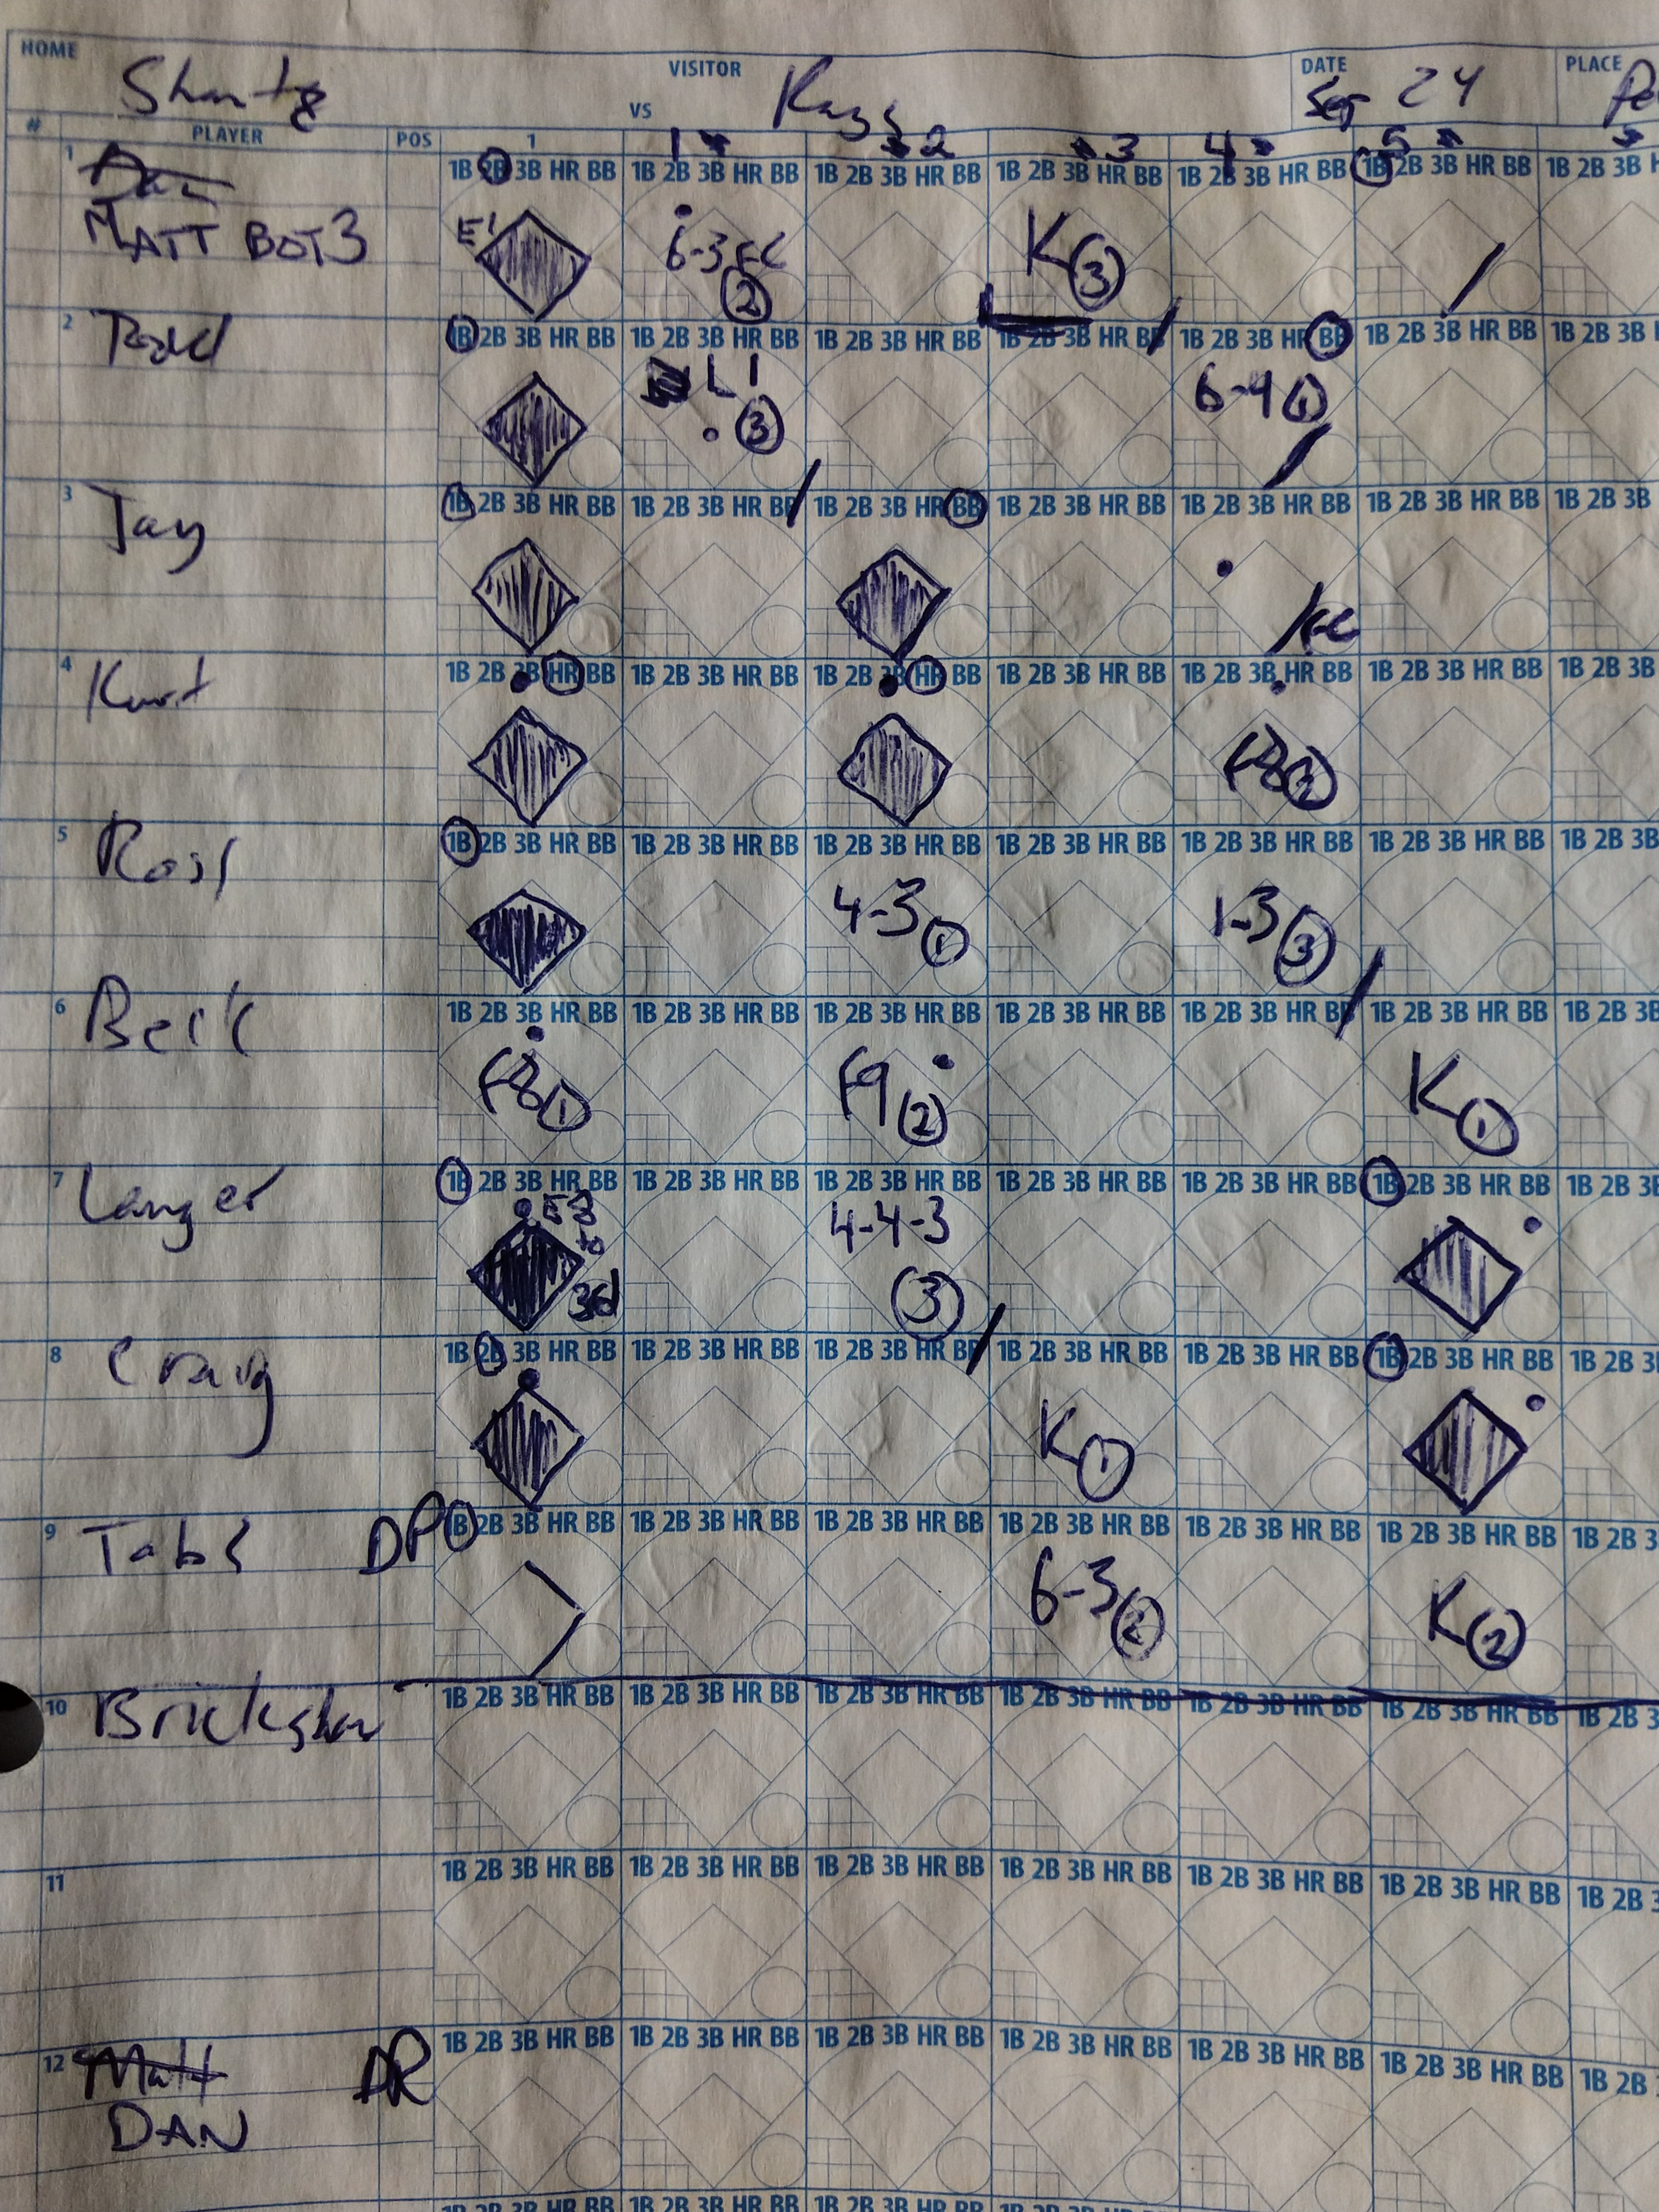 HOME VISITOR DATE PLACE
VS Sep 24
# PLAYER POS 1 1 2 3 4 5
1 1B 2B 3B HR BB 1B 2B 3B HR BB 1B 2B 3B HR BB 1B 2B 3B HR BB 1B 2B 3B HR BB 1B 2B 3B HR BB 1B 2B 3B
MATT BOT3 E1 6-3 FC 2 K 3
2 Todd 1B 2B 3B HR BB 1B 2B 3B HR BB 1B 2B 3B HR BB 1B 2B 3B HR BB 1B 2B 3B HR BB 1B 2B 3B HR BB 1B 2B 3B
L1 3 6-4 1
3 Jay 1B 2B 3B HR BB 1B 2B 3B HR BB 1B 2B 3B HR BB 1B 2B 3B HR BB 1B 2B 3B HR BB 1B 2B 3B HR BB 1B 2B 3B
FC
4 Kurt 1B 2B 3B HR BB 1B 2B 3B HR BB 1B 2B 3B HR BB 1B 2B 3B HR BB 1B 2B 3B HR BB 1B 2B 3B HR BB 1B 2B 3B
F8 2
5 Ross 1B 2B 3B HR BB 1B 2B 3B HR BB 1B 2B 3B HR BB 1B 2B 3B HR BB 1B 2B 3B HR BB 1B 2B 3B HR BB 1B 2B 3B
4-3 1 1-3 3
6 1B 2B 3B HR BB 1B 2B 3B HR BB 1B 2B 3B HR BB 1B 2B 3B HR BB 1B 2B 3B HR BB 1B 2B 3B HR BB 1B 2B 3B
F8 1 F9 2 K 1
7 Langer 1B 2B 3B HR BB 1B 2B 3B HR BB 1B 2B 3B HR BB 1B 2B 3B HR BB 1B 2B 3B HR BB 1B 2B 3B HR BB 1B 2B 3B
E8 to 3rd 4-4-3 3
8 Craig 1B 2B 3B HR BB 1B 2B 3B HR BB 1B 2B 3B HR BB 1B 2B 3B HR BB 1B 2B 3B HR BB 1B 2B 3B HR BB 1B 2B
K 1
9 Tabs DP 1B 2B 3B HR BB 1B 2B 3B HR BB 1B 2B 3B HR BB 1B 2B 3B HR BB 1B 2B 3B HR BB 1B 2B 3B HR BB 1B 2B
6-3 2 K 2
10 1B 2B 3B HR BB 1B 2B 3B HR BB 1B 2B 3B HR BB 1B 2B 3B HR BB 1B 2B 3B HR BB 1B 2B 3B HR BB 1B 2B
11 1B 2B 3B HR BB 1B 2B 3B HR BB 1B 2B 3B HR BB 1B 2B 3B HR BB 1B 2B 3B HR BB 1B 2B 3B HR BB 1B 2B
12 Matt 1B 2B 3B HR BB 1B 2B 3B HR BB 1B 2B 3B HR BB 1B 2B 3B HR BB 1B 2B 3B HR BB 1B 2B 3B HR BB 1B 2B
DAN
1B 2B 3B HR BB 1B 2B 3B HR BB 1B 2B 3B HR BB